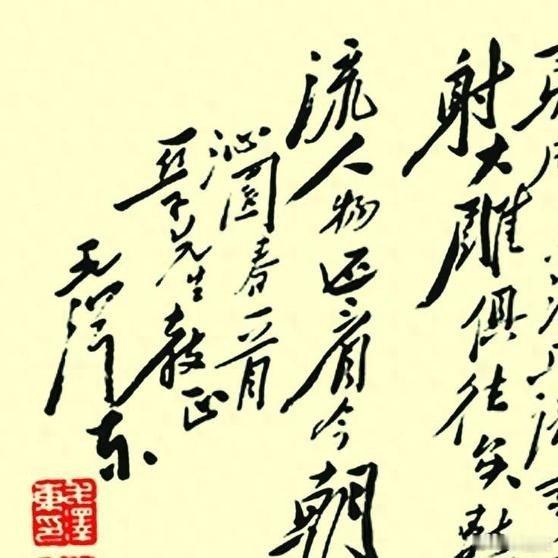 射大雕俱往矣数
流人物还看今朝
沁园春一首
亚子先生教正
毛泽东
毛澤東印